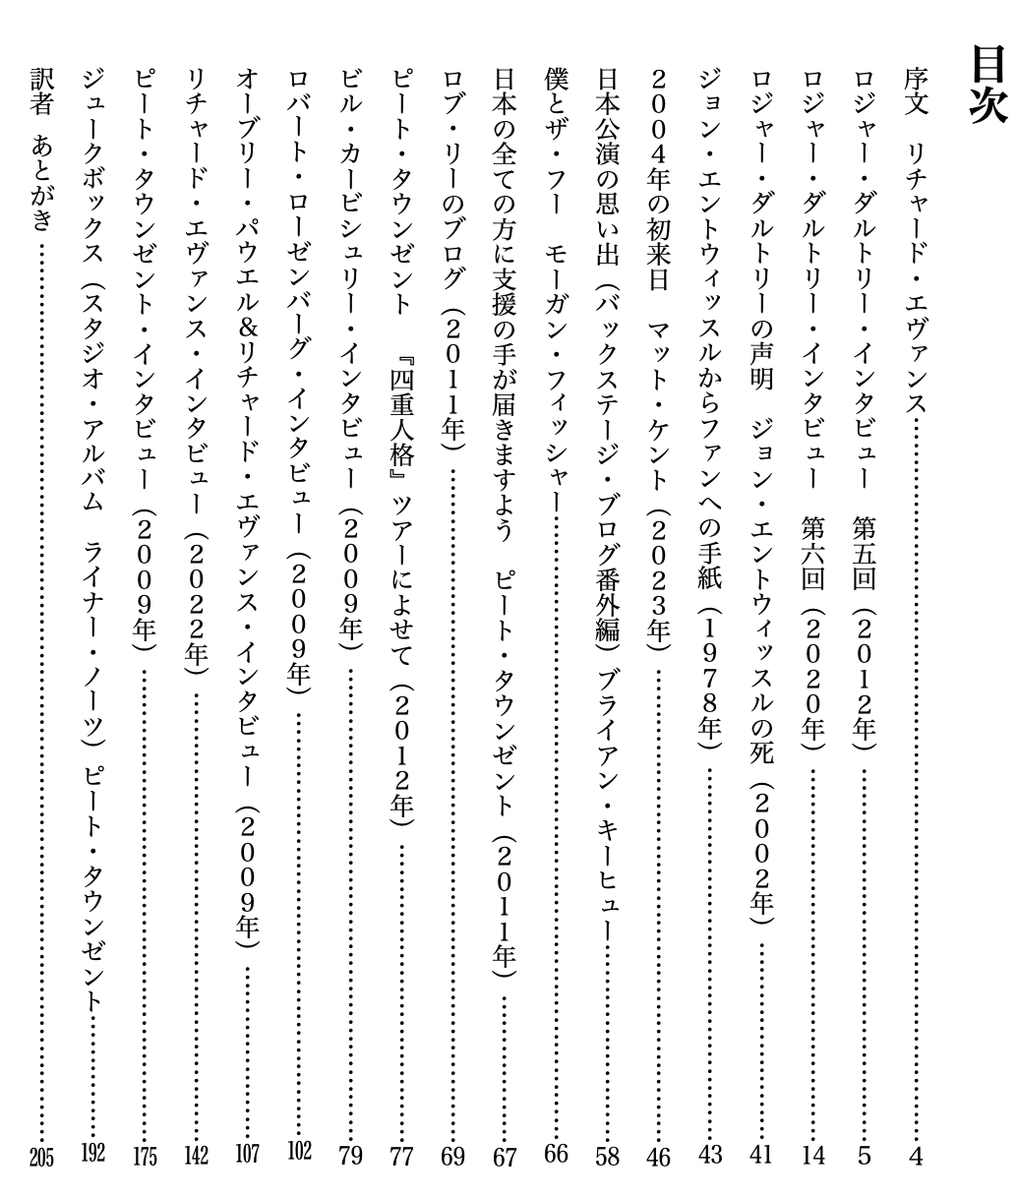 目次
序文　リチャード・エヴァンス……………………4
ロジャー・ダルトリー・インタビュー　第五回（2012年）……………………5
ロジャー・ダルトリー・インタビュー　第六回（2020年）……………………14
ロジャー・ダルトリーの声明　ジョン・エントウィッスルの死（2002年）……………………41
ジョン・エントウィッスルからファンへの手紙（1978年）……………………43
2004年の初来日　マット・ケント（2023年）……………………46
日本公演の思い出（バックステージ・ブログ番外編）ブライアン・キーヒュー……………………58
僕とザ・フー　モーガン・フィッシャー……………………66
日本の全ての方に支援の手が届きますよう　ピート・タウンゼント（2011年）……………………67
ロブ・リーのブログ（2011年）……………………69
ピート・タウンゼント　『四重人格』ツアーによせて（2012年）……………………77
ビル・カービシュリー・インタビュー（2009年）……………………79
ロバート・ローゼンバーグ・インタビュー（2009年）……………………102
オーブリー・パウエル&リチャード・エヴァンス・インタビュー（2009年）……………………107
リチャード・エヴァンス・インタビュー（2022年）……………………142
ピート・タウンゼント・インタビュー（2009年）……………………175
ジュークボックス（スタジオ・アルバム　ライナー・ノーツ）ピート・タウンゼント……………………192
訳者　あとがき……………………205